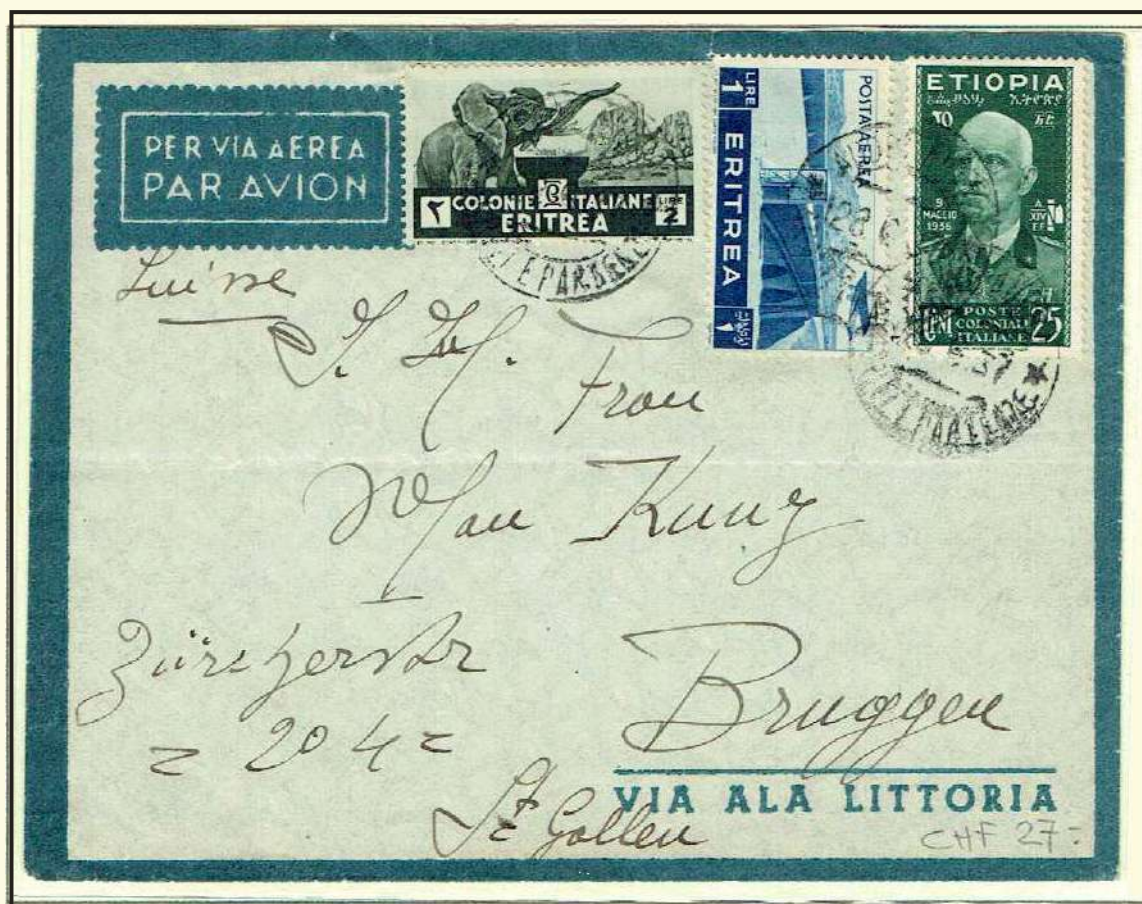 PER VIA AEREA
PAR AVION
٢ COLONIE ITALIANE LIRE 2
ERITREA
1 LIRE ERITREA ١
POSTA AEREA
ETIOPIA
9 MAGGIO 1936
A XIV E.F.
CENT POSTE COLONIALI ITALIANE 25
Suisse
Frau
Kunz
Zürcherstr
= 204 =
Bruggen
St Gallen
VIA ALA LITTORIA
CHF 27.-